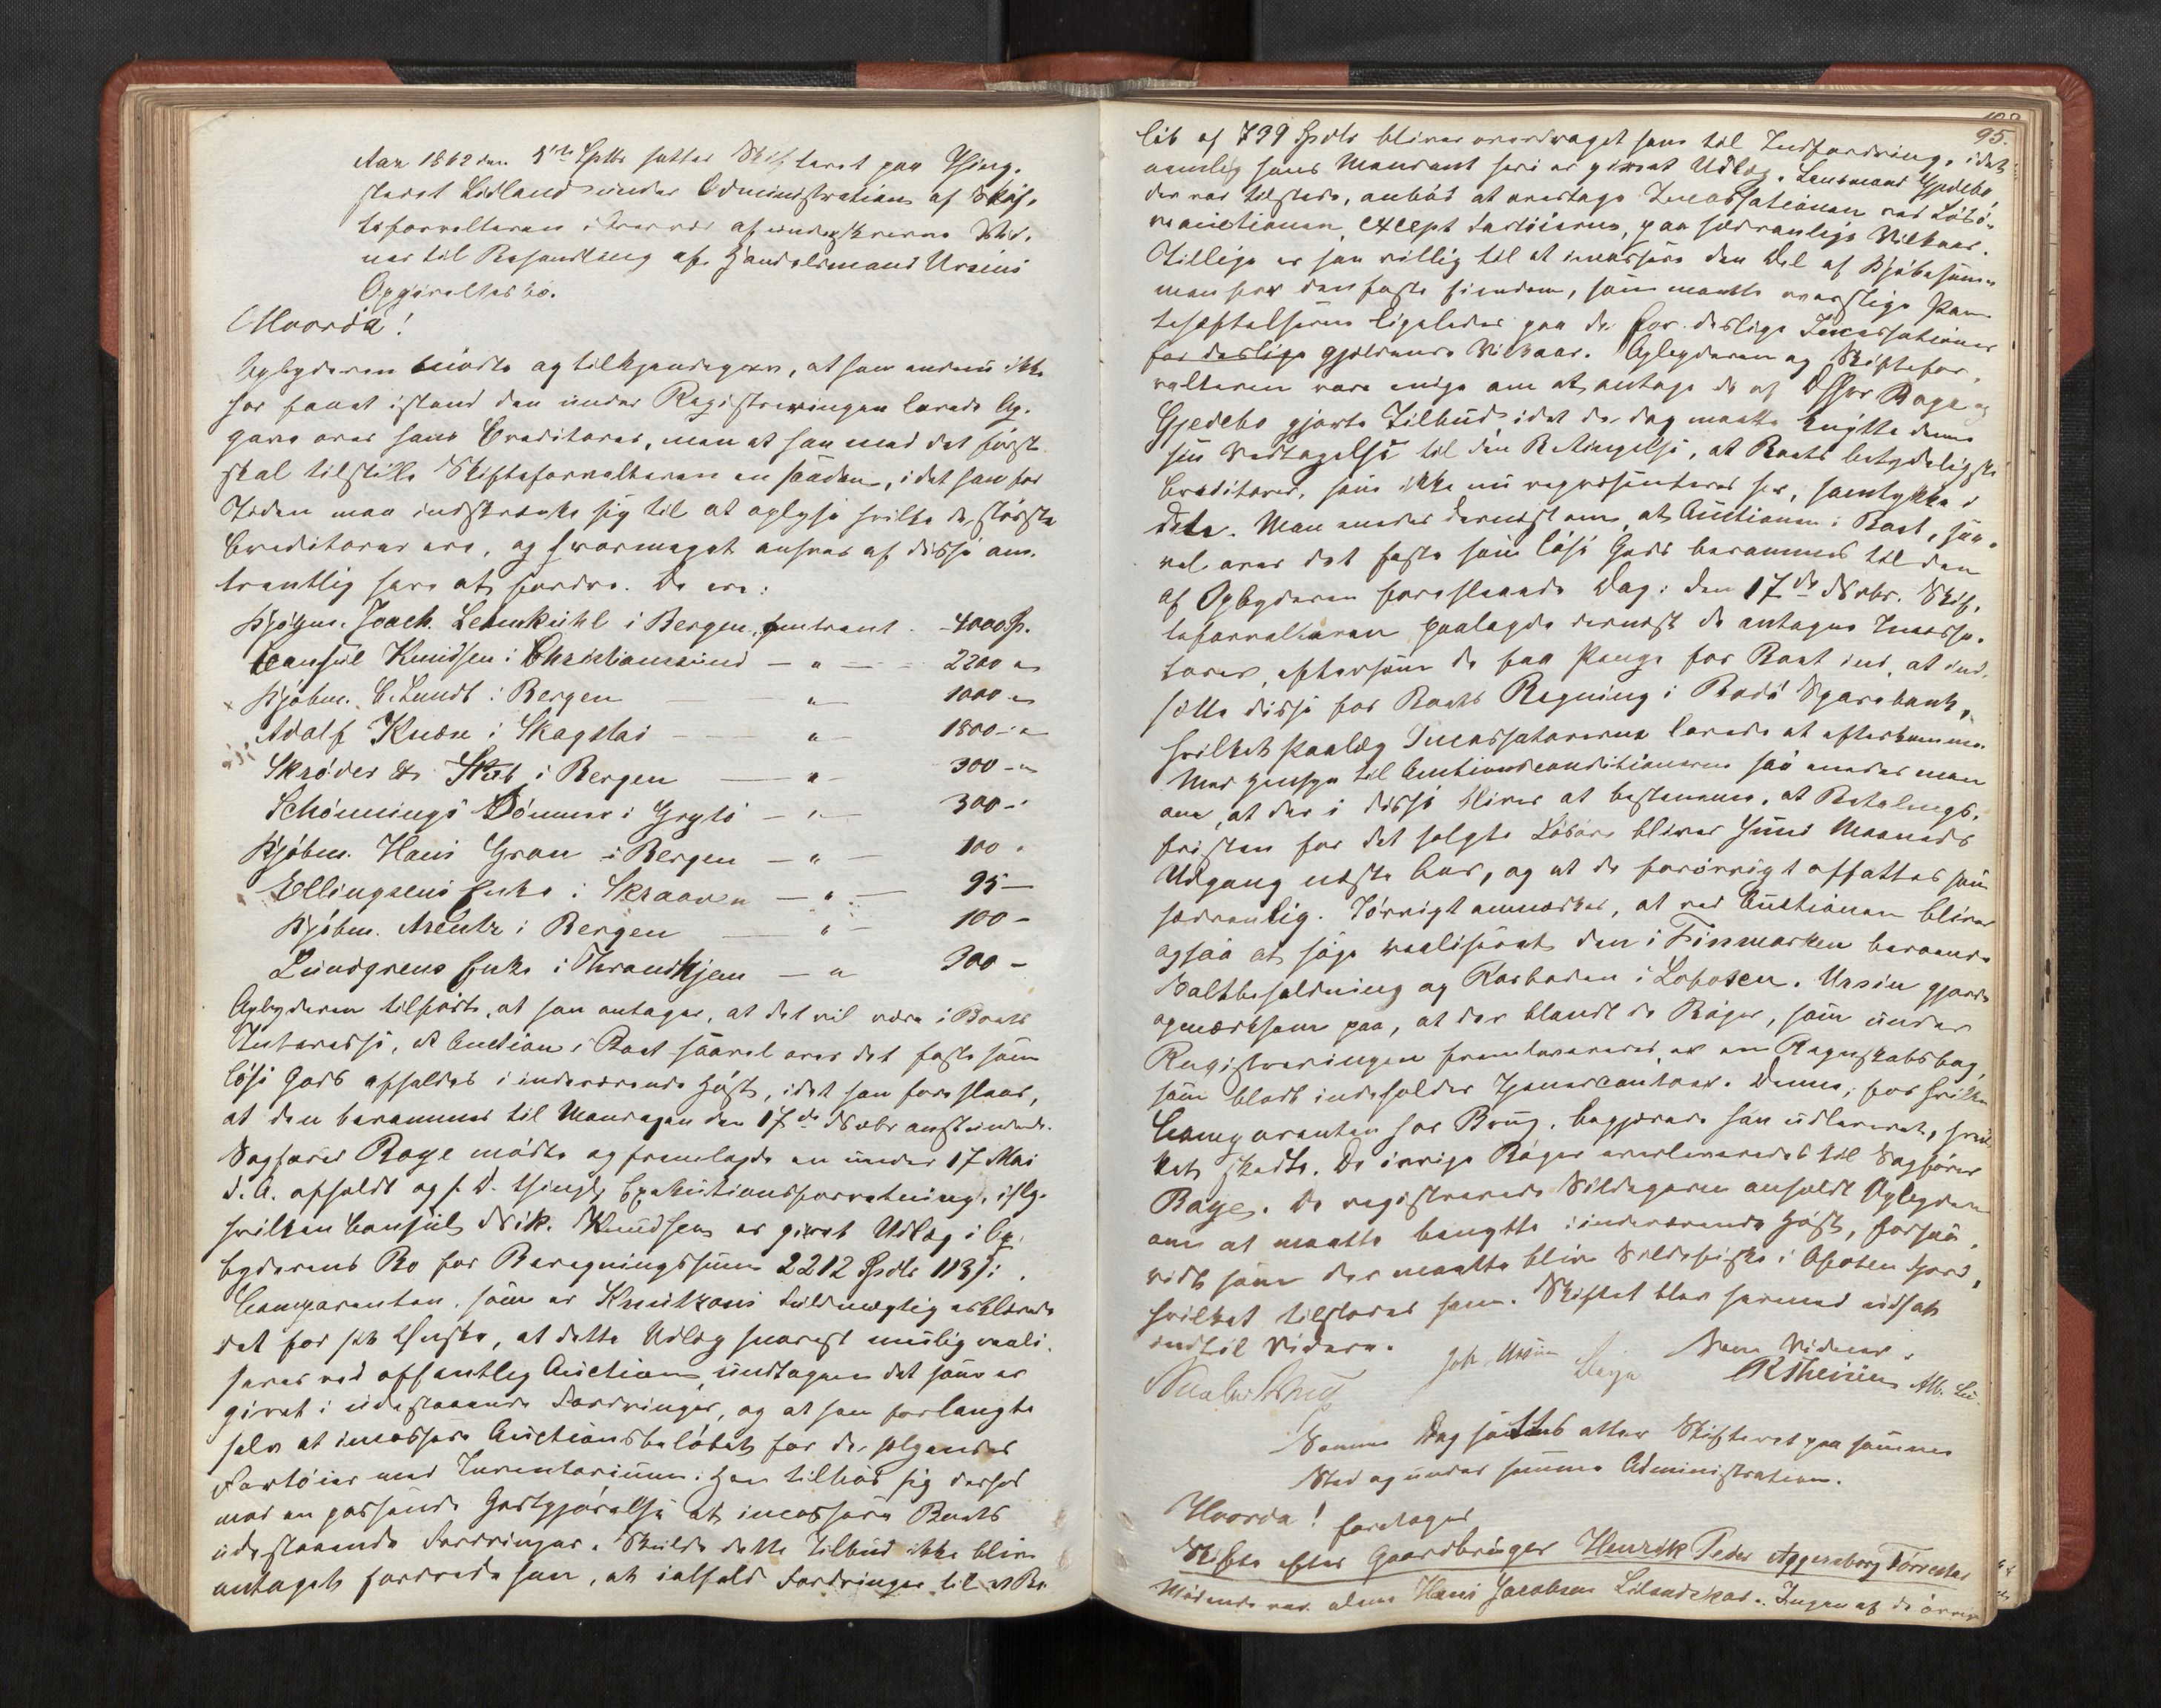 Aar 1862 den 3die Septbr sattes Skifteret paa Thing-
stedet Lidland under Administration af Skif-
teforvalteren i Overvær af underskrevne Vid-
ner til Behandling af Handelsmand Ursins
Opgivelsesbo.
Hvorda!
Opbyderen mødte og tilkjendegav, at han endnu ikke
har faaet istand den under Registreringen lovede Op-
gave over hans Creditorer, men at han med det første
skal tilstille Skifteforvalteren en saadan, idet han for
Tiden maa indskrænke sig til at oplyse hvilke de største
Creditorer ere, og hvormeget enhver af disse om-
trentlig have at fordre. De ere:
Kjøbm. Joach. Lehmkühl i Bergen, omtrent - 4000 Sp.
Consul Knudsen i Christiansund — " — 2200 "
Kjøbm. C. Sundt i Bergen — " — 1000 "
Adolf Knæn i Skagstad — " — 1800 - "
Skrøder & Støb i Bergen — " — 300 - "
Schønnings Sønner i Gryto — " — 300 -
Kjøbm. Hans Gran i Bergen — " — 100 "
Ellingsens Enke i Skraaven — " — 95 —
Kjøbm. Arentz i Bergen — " — 100 -
Lundgrens Enke i Throndhjem — " 300 -
Opbyderen tilførte, at han antager, at det vil være i Boets
Interesse, at Auction i Boet saavel over det faste som
løse Gods afholdes i indeværende Høst, idet han foreslaaer,
at den berammes til Mandagen den 17de Novbr anstundende.
Sagfører Baye mødte og fremlagde en under 17 Mai
d. A. afholdt og s. D. thingl. Executionsforretning, iflg.
hvilken Consul Nik. Knudsen er givet Udlæg i Op-
byderens Bo for Beregningssum 2212 Spdlr 113 ß.
Comparenten, som er Knudtzons Fuldmægtig erklærede
det for sit Ønske, at dette Udlæg snarest mulig reali-
seres ved offentlig Auction, undtagen det som er
givet i udestaaende Fordringer, og at han forlangte
selv at incassere Auctionsbeløbet for de solgendes
Fartøier med Inventarium. Han tilbød sig derhos
mod en passende Godtgjørelse at incassere Boets
udestaaende Fordringer. Skulde dette Tilbud ikke blive
antaget fordrede han, at ialfald Fordringer til et Be-
95.
løb af 739 Spdlr bliver overdraget ham til Indfordring, idet
nemlig hans Mandant heri er givet Udlæg. Lensmand Gjedebo,
der var tilstede, anbød at overtage Incassationen ved Løsø-
reauctionen, except Fartøierne, paa sædvanlige Vilkaar.
Tillige er han villig til at incassere den Del af Kjøbesum-
men for den faste Eiendom, som maatte overstige Pan-
tehæftelserne ligeledes paa de for deslige Incassationer
for deslige gjeldende Vilkaar. Opbyderen og Skiftefor-
valteren vare enige om at antage de af DHrr Baye og
Gjedebo gjorte Tilbud, idet de dog maatte knytte denne
sin Vedtagelse til den Betingelse, at Boets betydeligste
Creditorer, som ikke nu repræsenteres her, samtykke i
dette. Man enedes dernæst om, at Auctionen i Boet, saa-
vel over det faste som løse Gods berammes til den
af Opbyderen foreslaaede Dag: den 17de Novbr. Skif-
teforvalteren paalagde dernæst de antagne Incassa-
torer, eftersom de faa Penge for Boet ind, at ind-
sætte disse for Boets Regning i Bodø Sparebank,
hvilket Paalæg Incassatorerne lovede at efterkomme.
Med Hensyn til Auctionsconditionerne saa enedes man
om, at der i disse bliver at bestemme, at Betalings-
fristen for det solgte Løsøre bliver Juni Maaneds
Udgang næste Aar, og at de forøvrigt affattes som
sædvanlig. Iøvrigt anmærkes, at ved Auctionen bliver
ogsaa at søge realiseret den i Finmarken beroende
Saltbeholdning og Rorboden i Lofoten. Ursin gjorde
opmærksom paa, at der blandt de Bøger, som under
Registreringen fremlaveredes, er en Regnskabsbog,
som blot indeholder Tjenercontoer. Denne, for hvilken
Comparenten har Brug, begjærede han udleveret, hvil-
ket skedte. De øvrige Bøger overleveredes til Sagfører
Baye. De registrerede Sildegarn anholdt Opbyderen
om at maatte benytte i indeværende Høst, forsaa-
vidt som der maatte blive Sildefiske i Ofoten Fjord,
hvilket tilstodes ham. Skiftet blev hermed udsat
indtil Videre.
Joh. Ursin Baye Som Vidner:
RTheisin
Samme Dag sattes atter Skifteret paa samme
Sted og under samme Administration.
Hvorda! foretages
Skifte efter Gaardbruger Henrik Peder Aggersborg Forrester
Mødende var alene Hans Jacobsen Lilandskar. Ingen af de øvrige